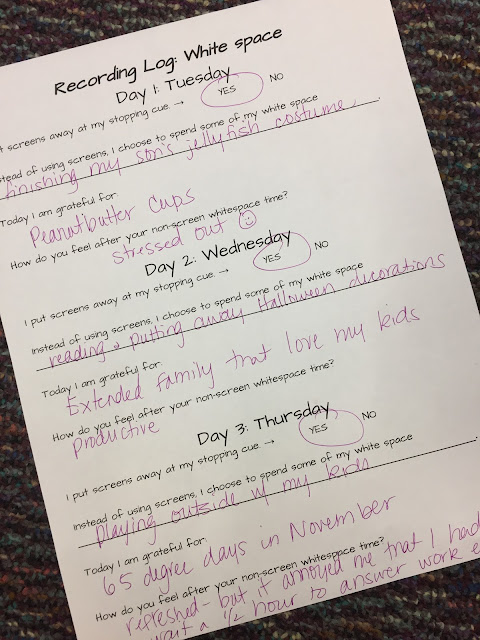 Recording Log: White space
Day 1: Tuesday
t screens away at my stopping cue → YES NO
stead of using screens, I choose to spend some of my white space
finishing my son's jellyfish costume.
Today I am grateful for
Peanutbutter cups
How do you feel after your non-screen whitespace time?
stressed out ☺
Day 2: Wednesday
I put screens away at my stopping cue → YES NO
Instead of using screens, I choose to spend some of my white space
reading & putting away Halloween decorations
Today I am grateful for
Extended family that love my kids
How do you feel after your non-screen whitespace time?
productive
Day 3: Thursday
I put screens away at my stopping cue → YES NO
Instead of using screens, I choose to spend some of my white space
playing outside w/ my kids
Today I am grateful for:
65 degree days in November
How do you feel after your non-screen whitespace time?
refreshed - but it annoyed me that I had
wait a 1/2 hour to answer work e